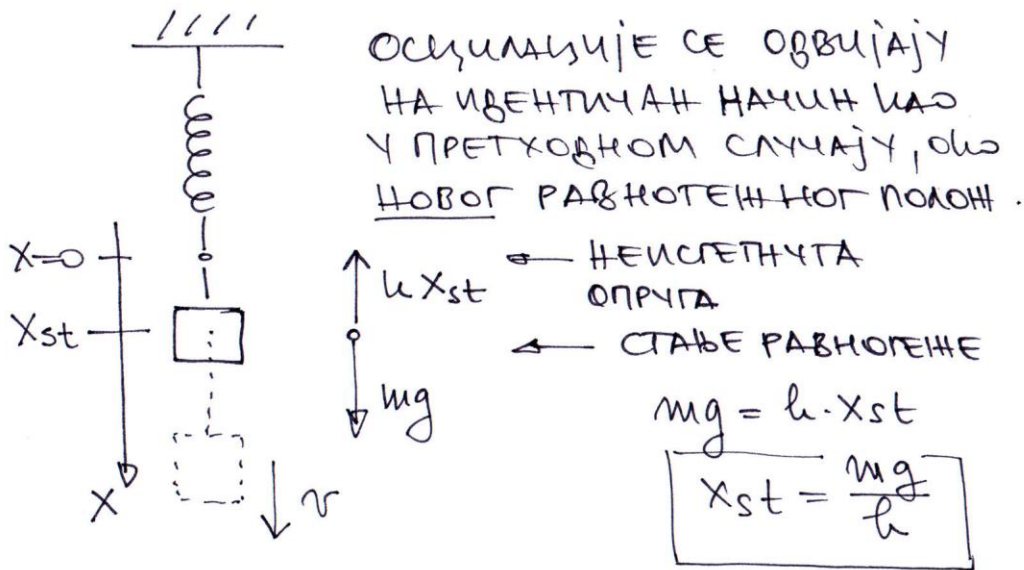 ОСЦИЛАЦИЈЕ СЕ ОДВИЈАЈУ
НА ИДЕНТИЧАН НАЧИН КАО
У ПРЕТХОДНОМ СЛУЧАЈУ, ОКО
НОВОГ РАВНОТЕЖНОГ ПОЛОЖ.
x=0
НЕИСТЕГНУТА
ОПРУГА
k xst
xst
СТАЊЕ РАВНОТЕЖЕ
mg
mg = k·xst
xst = mg/k
x
v